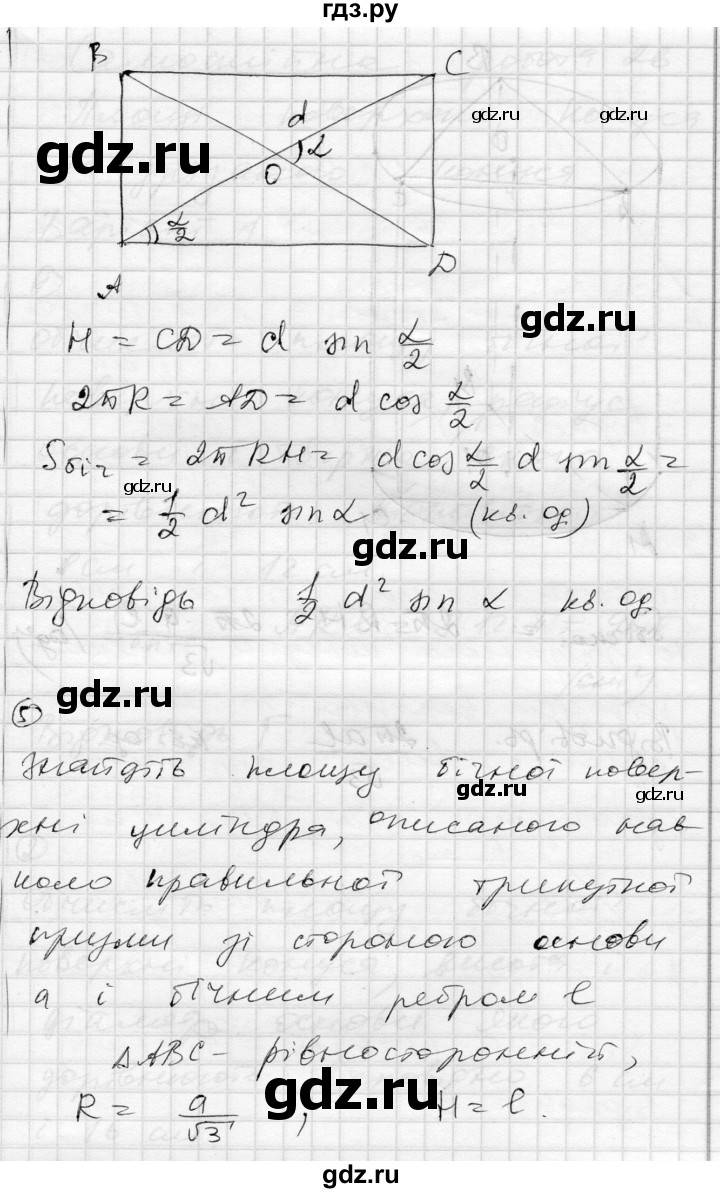 гдз.ру
B
C
d
gdz.ru
gdz.ru
gdz.ru
α
O
α/2
A
D
gdz.ru
H = CD = d sin α/2
2πR = AD = d cos α/2
Sбіч = 2πRH = d cos α/2 d sin α/2 =
gdz.ru
= 1/2 d² sin α (кв. од)
gdz.ru
Відповідь 1/2 d² sin α кв. од
gdz.ru
5)
Знайдіть площу бічної повер-
gdz.ru
хні циліндра, описаного нав
коло правильної трикутної
призми зі стороною основи
a і бічним ребром l
ΔABC - рівносторонній,
R = a/√3, H = l.
gdz.ru
gdz.ru